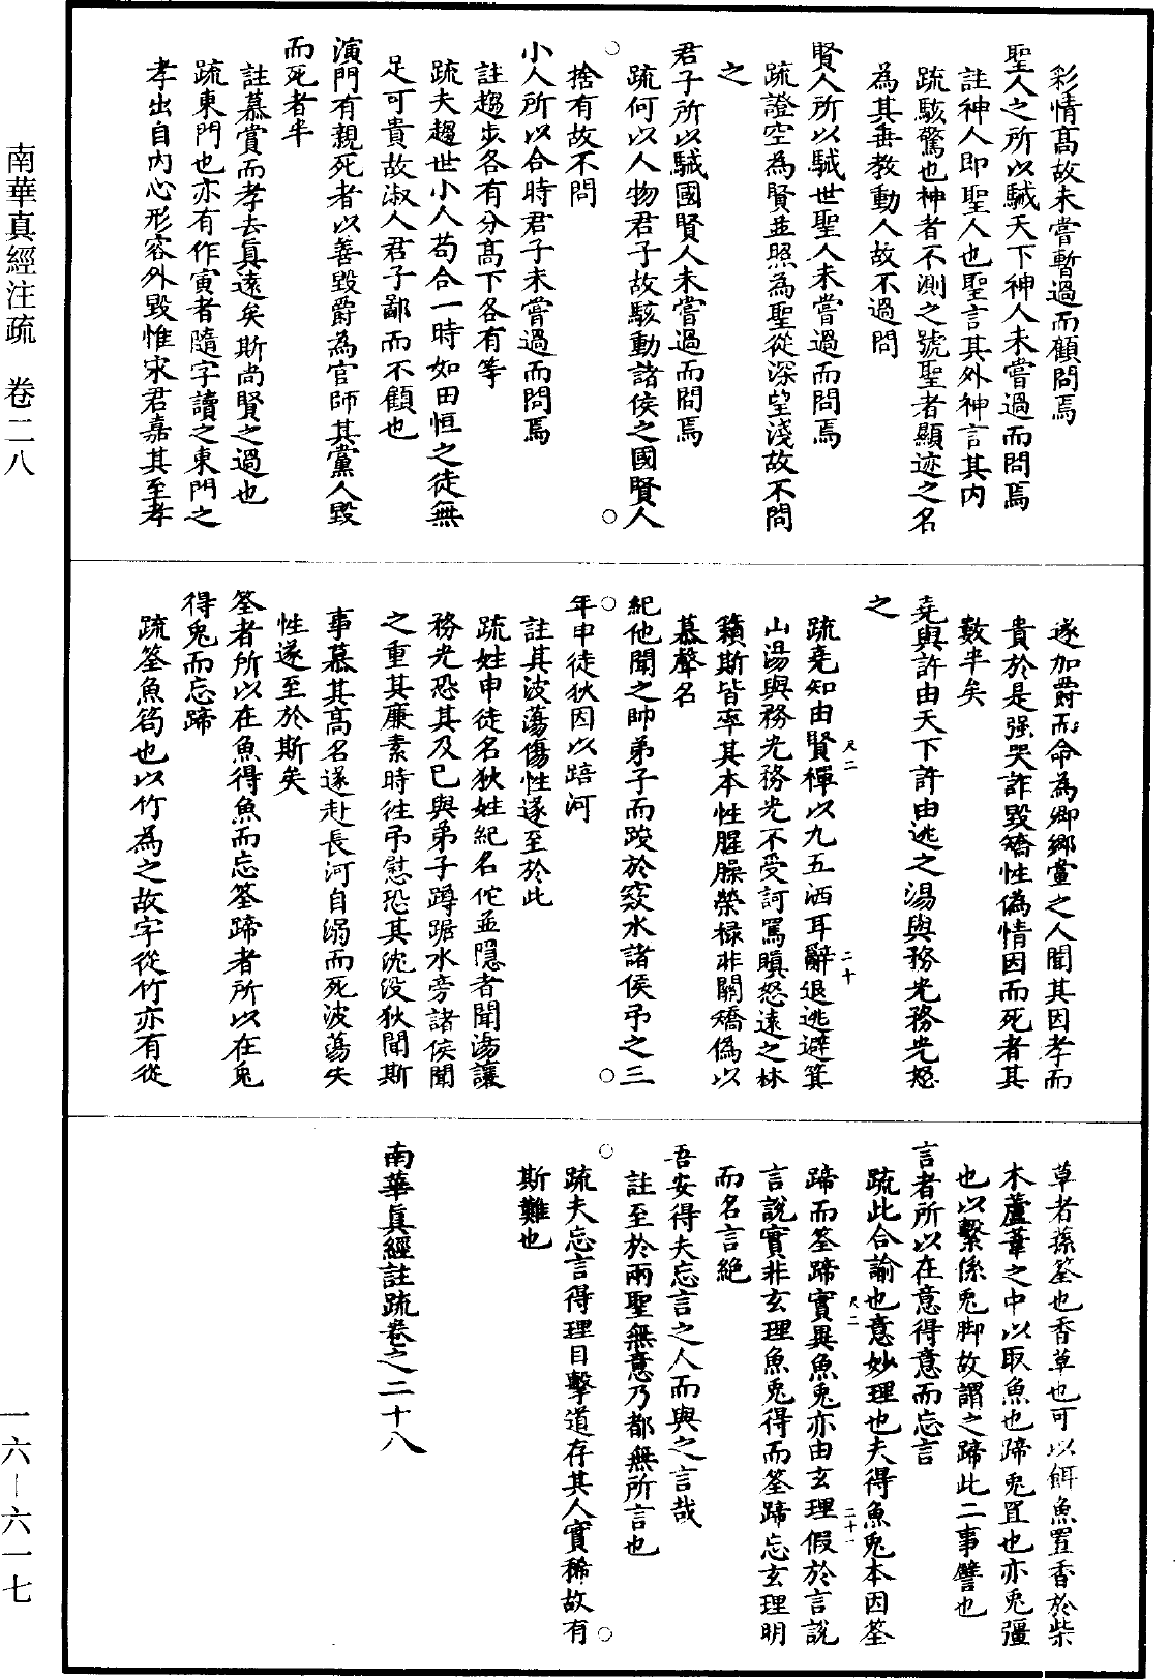 彩情高故未嘗暫過而顧問焉
聖人之所以駴天下神人未嘗過而問焉
註神人即聖人也聖言其外神言其内
疏駭驚也神者不測之號聖者顯迹之名
為其垂教動人故不過問
賢人所以駴世聖人未嘗過而問焉
疏證空為賢並照為聖從深望淺故不問
之
君子所以駴國賢人未嘗過而問焉
疏何以人物君子故駭動諸侯之國賢人
捨有故不問
小人所以合時君子未嘗過而問焉
註趨步各有分高下各有等
疏夫趨世小人苟合一時如田恒之徒無
足可貴故淑人君子鄙而不顧也
演門有親死者以善毀爵為官師其黨人毀
而死者半
註慕賞而孝去真遠矣斯尚賢之過也
疏東門也亦有作寅者隨字讀之東門之
孝出自内心形容外毀惟宋君嘉其至孝
遂加爵而命為卿鄉黨之人聞其因孝而
貴於是强哭詐毀矯性偽情因而死者其
數半矣
堯與許由天下許由逃之湯與務光務光怒
之
疏堯知由賢禪以九五洒耳辭退逃避箕
山湯與務光務光不受訶罵瞋怒遠之林
籟斯皆率其本性腥臊榮祿非關矯偽以
慕聲名
紀他聞之帥弟子而踆於窾水諸侯弔之三
年申徒狄因以踣河
註其波蕩傷性遂至於此
疏姓申徒名狄姓紀名佗並隱者聞湯讓
務光恐其及已與弟子蹲踞水旁諸侯聞
之重其廉素時往弔慰恐其沈没狄聞斯
事慕其高名遂赴長河自溺而死波蕩失
性遂至於斯矣
筌者所以在魚得魚而忘筌蹄者所以在兔
得兔而忘蹄
疏筌魚筍也以竹為之故字從竹亦有從
草者蓀筌也香草也可以餌魚置香於柴
木蘆葦之中以取魚也蹄兔罝也亦兔彊
也以繫係兔脚故謂之蹄此二事譬也
言者所以在意得意而忘言
疏此合諭也意妙理也夫得魚兔本因筌
蹄而筌蹄實異魚兔亦由玄理假於言說
言說實非玄理魚兔得而筌蹄忘玄理明
而名言絕
吾安得夫忘言之人而與之言哉
註至於兩聖無意乃都無所言也
疏夫忘言得理目擊道存其人實稀故有
斯難也
南華真經註疏卷之二十八
尺二
二十
尺二
二十一
南華真經注疏 卷二八
一六—六一七